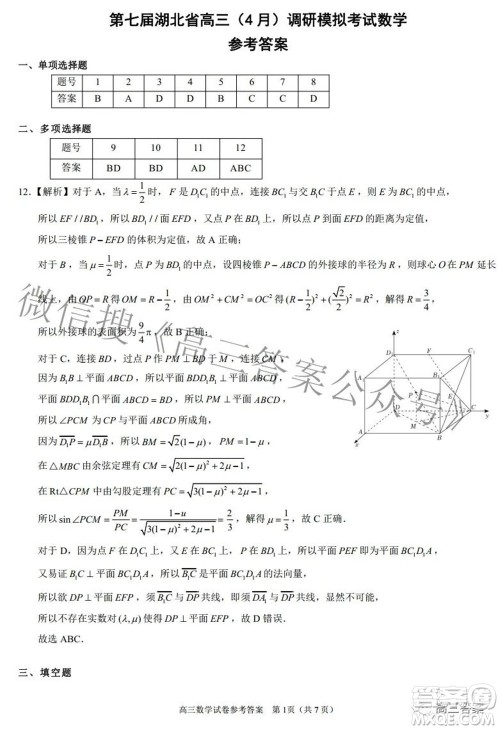 第七届湖北省高三（4月）调研模拟考试数学
参考答案
一、单项选择题
题号 1 2 3 4 5 6 7 8
答案 B A D D B C A D
二、多项选择题
题号 9 10 11 12
答案 BD BD AD ABC
12.【解析】对于A，当λ=1/2时，F是D₁C₁的中点，连接BC₁与交B₁C于点E，则E为BC₁的中点，
所以EF//BD₁，所以BD₁//面EFD，又点P在BD₁上，所以点P到面EFD的距离为定值，
所以三棱锥P－EFD的体积为定值，故A正确；
对于B，当μ=1/2时，点P为BD₁的中点，设四棱锥P－ABCD的外接球的半径为R，则球心O在PM延长
线上，由OP=R得OM=R－1/2，由OM²+CM²=OC²得(R－1/2)²+(√2/2)²=R²，解得R=3/4，
所以外接球的表面积为9/4π，故B正确；
对于C，连接BD，过点P作PM⊥BD于M，连接CM，
因为B₁B⊥平面ABCD，所以平面BDD₁B₁⊥平面ABCD，
平面BDD₁B₁∩平面ABCD=BD，所以PM⊥平面ABCD，
所以∠PCM为CP与平面ABCD所成角，
因为D₁P=μD₁B，所以BM=√2(1－μ)，PM=1－μ，
在△MBC由余弦定理有CM=√(2(1－μ)²+2μ－1)，
在Rt△CPM中由勾股定理有PC=√(3(1－μ)²+2μ－1)，
所以sin∠PCM=PM/PC=(1－u)/√(3(1－μ)²+2μ－1)，解得，故C正确．
对于D，因为点F在D₁C₁上，点P在D₁B上，所以平面PEF即为平面D₁C₁B，
又易得B₁C⊥平面D₁C₁B，所以B₁C是平面D₁C₁B的法向量，
所以欲DP⊥平面EFP，须B₁C与DP共线，即须DA₁与DP共线，
所以不存在实数对(λ,μ)使得DP⊥平面EFP，故D错误．
故选ABC．
三、填空题
高三数学试卷参考答案 第1页（共7页）
微信搜《高三答案公众号》
高三答案